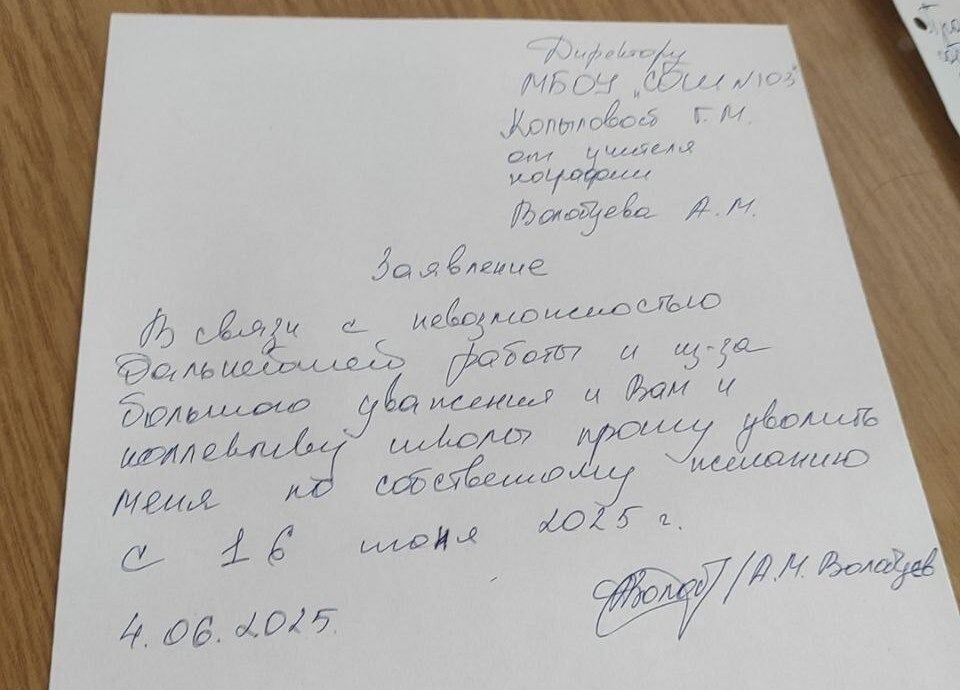 Директору
МБОУ "СОШ №103"
Копыловой Г.М.
от учителя
географии
Волобуева А.М.
Заявление
В связи с невозможностью
дальнейшей работы и из-за
большого уважения к Вам и
коллективу школы прошу уволить
меня по собственному желанию
с 16 июня 2025 г.
4.06.2025.
/А.М. Волобуев